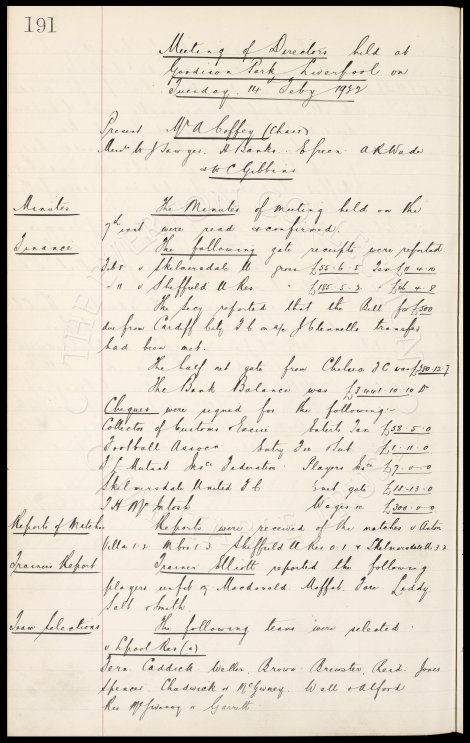 191
Meeting of Directors held at
Goodison Park, Liverpool on
Tuesday 14 Feby 1922
Present Mr A Coffey (Chair)
Messrs W J Sawyer. H Banks. E Green. A R Wade
& W C Gibbins
Minutes
The Minutes of meeting held on the
7th inst were read & confirmed.
Finance
The following gate receipts were reported
Feb 8 v Skelmersdale U gross £55.6.5 Tax £11.4.10
" 11 v Sheffield U Res " £185.5.3
The Secy reported that the Bill for £500
due from Cardiff City F C on a/c J Clennells transfer
had been met.
The half net gate from Chelsea F C was £380.12.7
The Bank Balance was £3441.10.10 Dr
Cheques were signed for the following:-
Collector of Customs & Excise Enterts Tax £58.5.0
Football Assocn Entry Fee & Sub £1.11.0
F L Mutual Federation Players £7.0.0
Skelmersdale United F C gate £18.13.0
T H McIntosh Wages £300.0.0
Reports of Matches
Reports were received of the matches v Aston
Villa 1.2 Mbro 1.3 Sheffield U Res 0.1 & Skelmersdale U 3.2
Trainers Report
Trainer Elliott reported the following
players unfit eg Macdonald. Moffat. Fare. Leddy.
Salt & Smith
Team Selections
The following teams were selected
v Lpool Res (a)
Fern. Caddick. Weller. Brown. Brewster. Reid. Jones
Spencer. Chadwick & McGivney. Wall & Alford
Res McGivney & Garratt